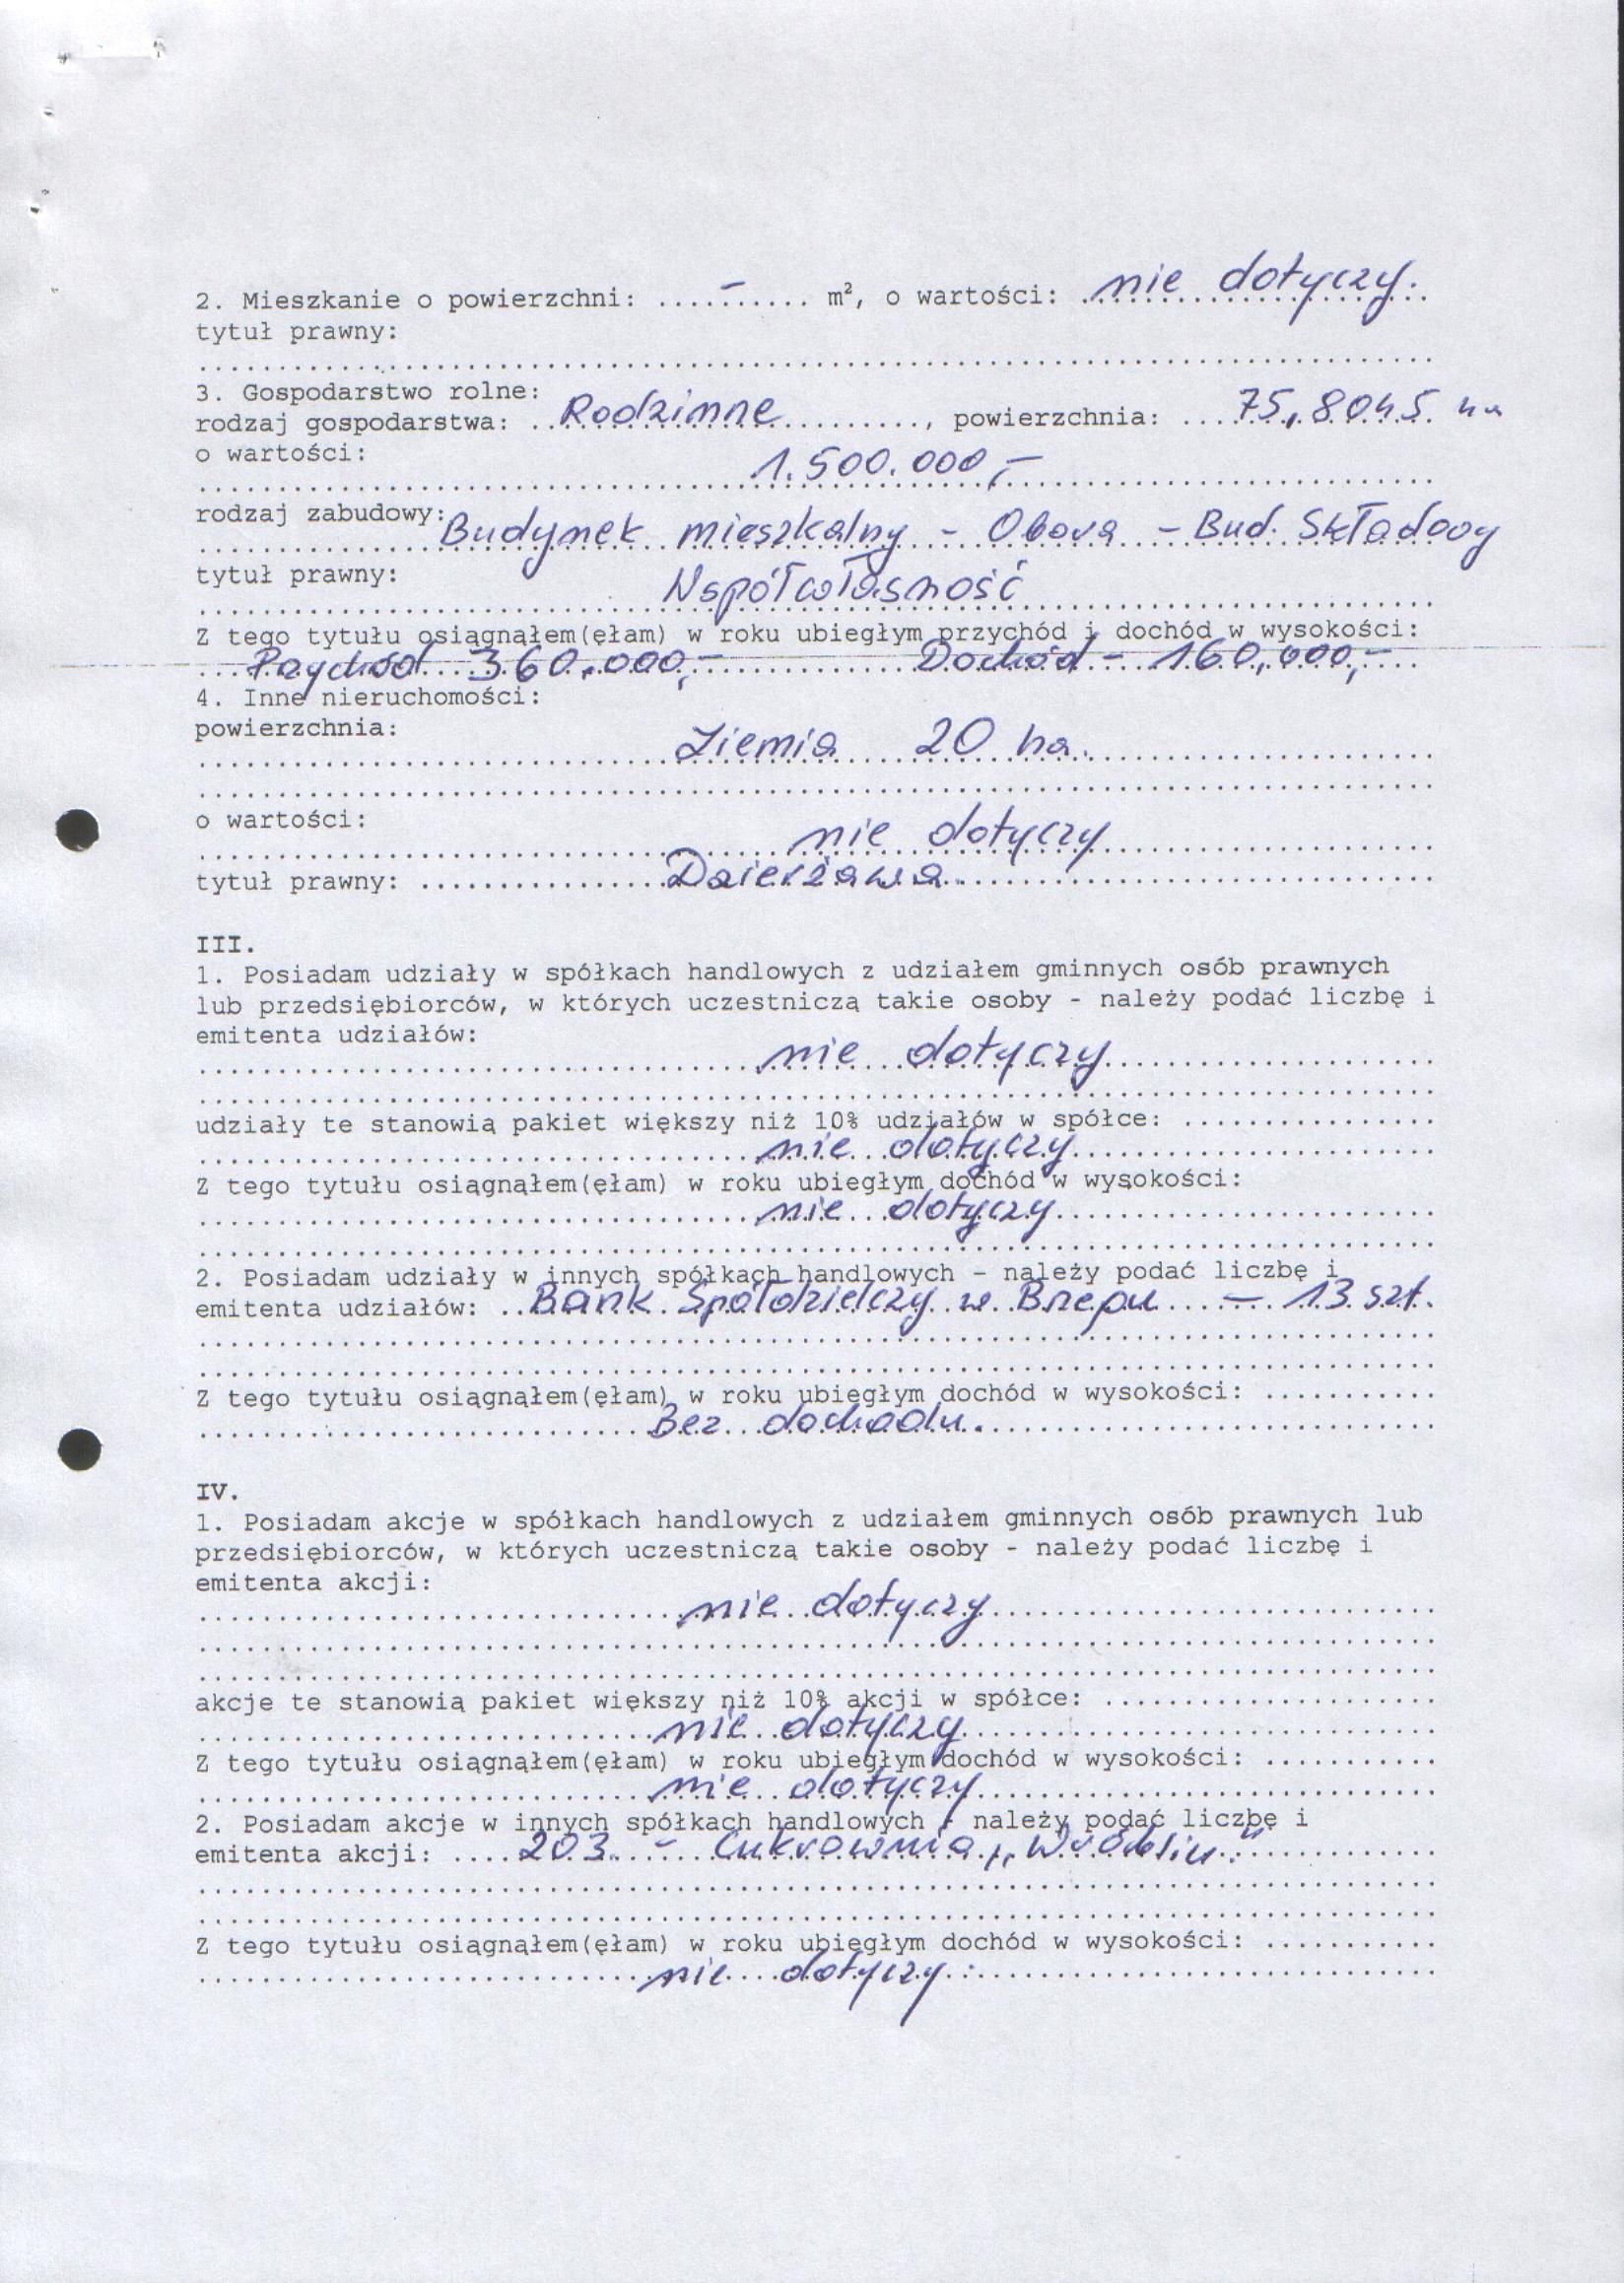 2. Mieszkanie o powierzchni: ....-...... m², o wartości: nie dotyczy.
tytuł prawny:
3. Gospodarstwo rolne:
rodzaj gospodarstwa: Rodzinne, powierzchnia: 75,8045 ha
o wartości:
1.500.000,-
rodzaj zabudowy: Budynek mieszkalny - Obora - Bud. Składowy
tytuł prawny: Współwłasność
Z tego tytułu osiągnąłem(ęłam) w roku ubiegłym przychód i dochód w wysokości:
Przychód 360.000,- Dochód - 160,000,-
4. Inne nieruchomości:
powierzchnia:
Ziemia 20 ha.
o wartości:
nie dotyczy
tytuł prawny: Dzierżawa
III.
1. Posiadam udziały w spółkach handlowych z udziałem gminnych osób prawnych
lub przedsiębiorców, w których uczestniczą takie osoby - należy podać liczbę i
emitenta udziałów:
nie dotyczy
udziały te stanowią pakiet większy niż 10% udziałów w spółce:
nie dotyczy
Z tego tytułu osiągnąłem(ęłam) w roku ubiegłym dochód w wysokości:
nie dotyczy
2. Posiadam udziały w innych spółkach handlowych - należy podać liczbę i
emitenta udziałów: Bank Spółdzielczy w - 13 szt.
Z tego tytułu osiągnąłem(ęłam) w roku ubiegłym dochód w wysokości:
Bez dochodu.
IV.
1. Posiadam akcje w spółkach handlowych z udziałem gminnych osób prawnych lub
przedsiębiorców, w których uczestniczą takie osoby - należy podać liczbę i
emitenta akcji:
nie dotyczy
akcje te stanowią pakiet większy niż 10% akcji w spółce:
nie dotyczy
Z tego tytułu osiągnąłem(ęłam) w roku ubiegłym dochód w wysokości:
nie dotyczy
2. Posiadam akcje w innych spółkach handlowych - należy podać liczbę i
emitenta akcji: 203 - Cukrownia
Z tego tytułu osiągnąłem(ęłam) w roku ubiegłym dochód w wysokości:
nie dotyczy.